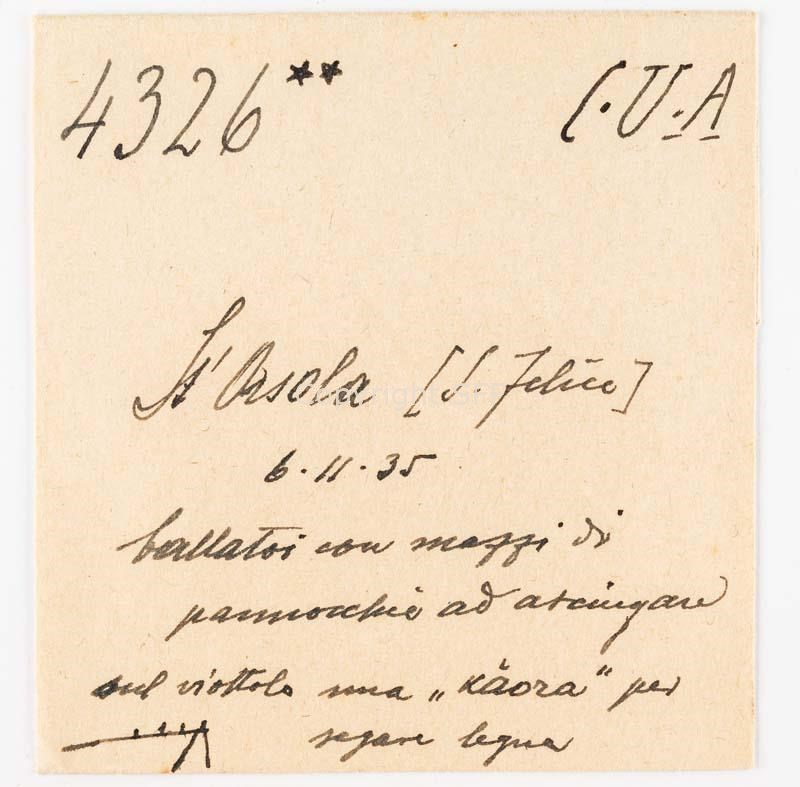 4326** C.U.A
St' Orsola [S. Felice]
6.11.35
ballatoi con mazzi di
pannocchie ad asciugare
sul viottolo una „kāora“ per
segare legna